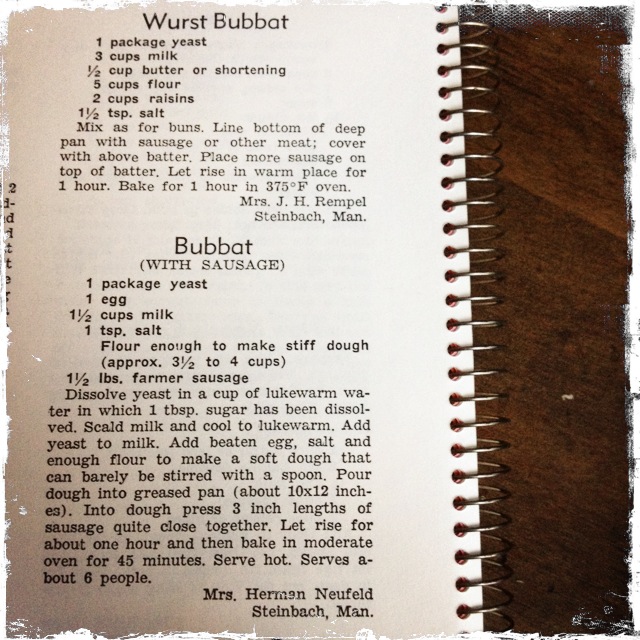 Wurst Bubbat
1 package yeast
3 cups milk
½ cup butter or shortening
5 cups flour
2 cups raisins
1½ tsp. salt
Mix as for buns. Line bottom of deep
pan with sausage or other meat; cover
with above batter. Place more sausage on
top of batter. Let rise in warm place for
1 hour. Bake for 1 hour in 375°F oven.
Mrs. J. H. Rempel
Steinbach, Man.
Bubbat
(WITH SAUSAGE)
1 package yeast
1 egg
1½ cups milk
1 tsp. salt
Flour enough to make stiff dough
(approx. 3½ to 4 cups)
1½ lbs. farmer sausage
Dissolve yeast in a cup of lukewarm wa-
ter in which 1 tbsp. sugar has been dissol-
ved. Scald milk and cool to lukewarm. Add
yeast to milk. Add beaten egg, salt and
enough flour to make a soft dough that
can barely be stirred with a spoon. Pour
dough into greased pan (about 10x12 inch-
es). Into dough press 3 inch lengths of
sausage quite close together. Let rise for
about one hour and then bake in moderate
oven for 45 minutes. Serve hot. Serves a-
bout 6 people.
Mrs. Herman Neufeld
Steinbach, Man.